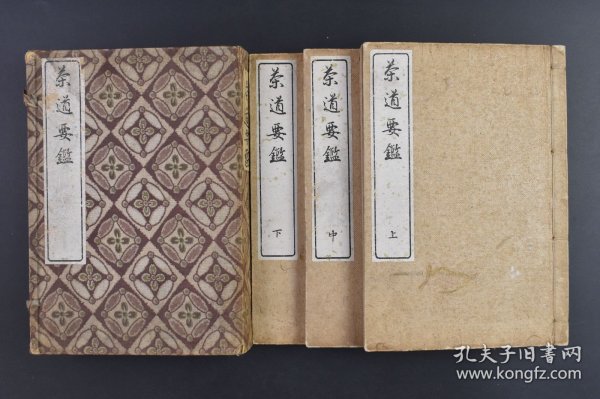 茶道要鑑
茶道要鑑
下
茶道要鑑
中
茶道要鑑
上
孔夫子旧書网
www.kongfz.com